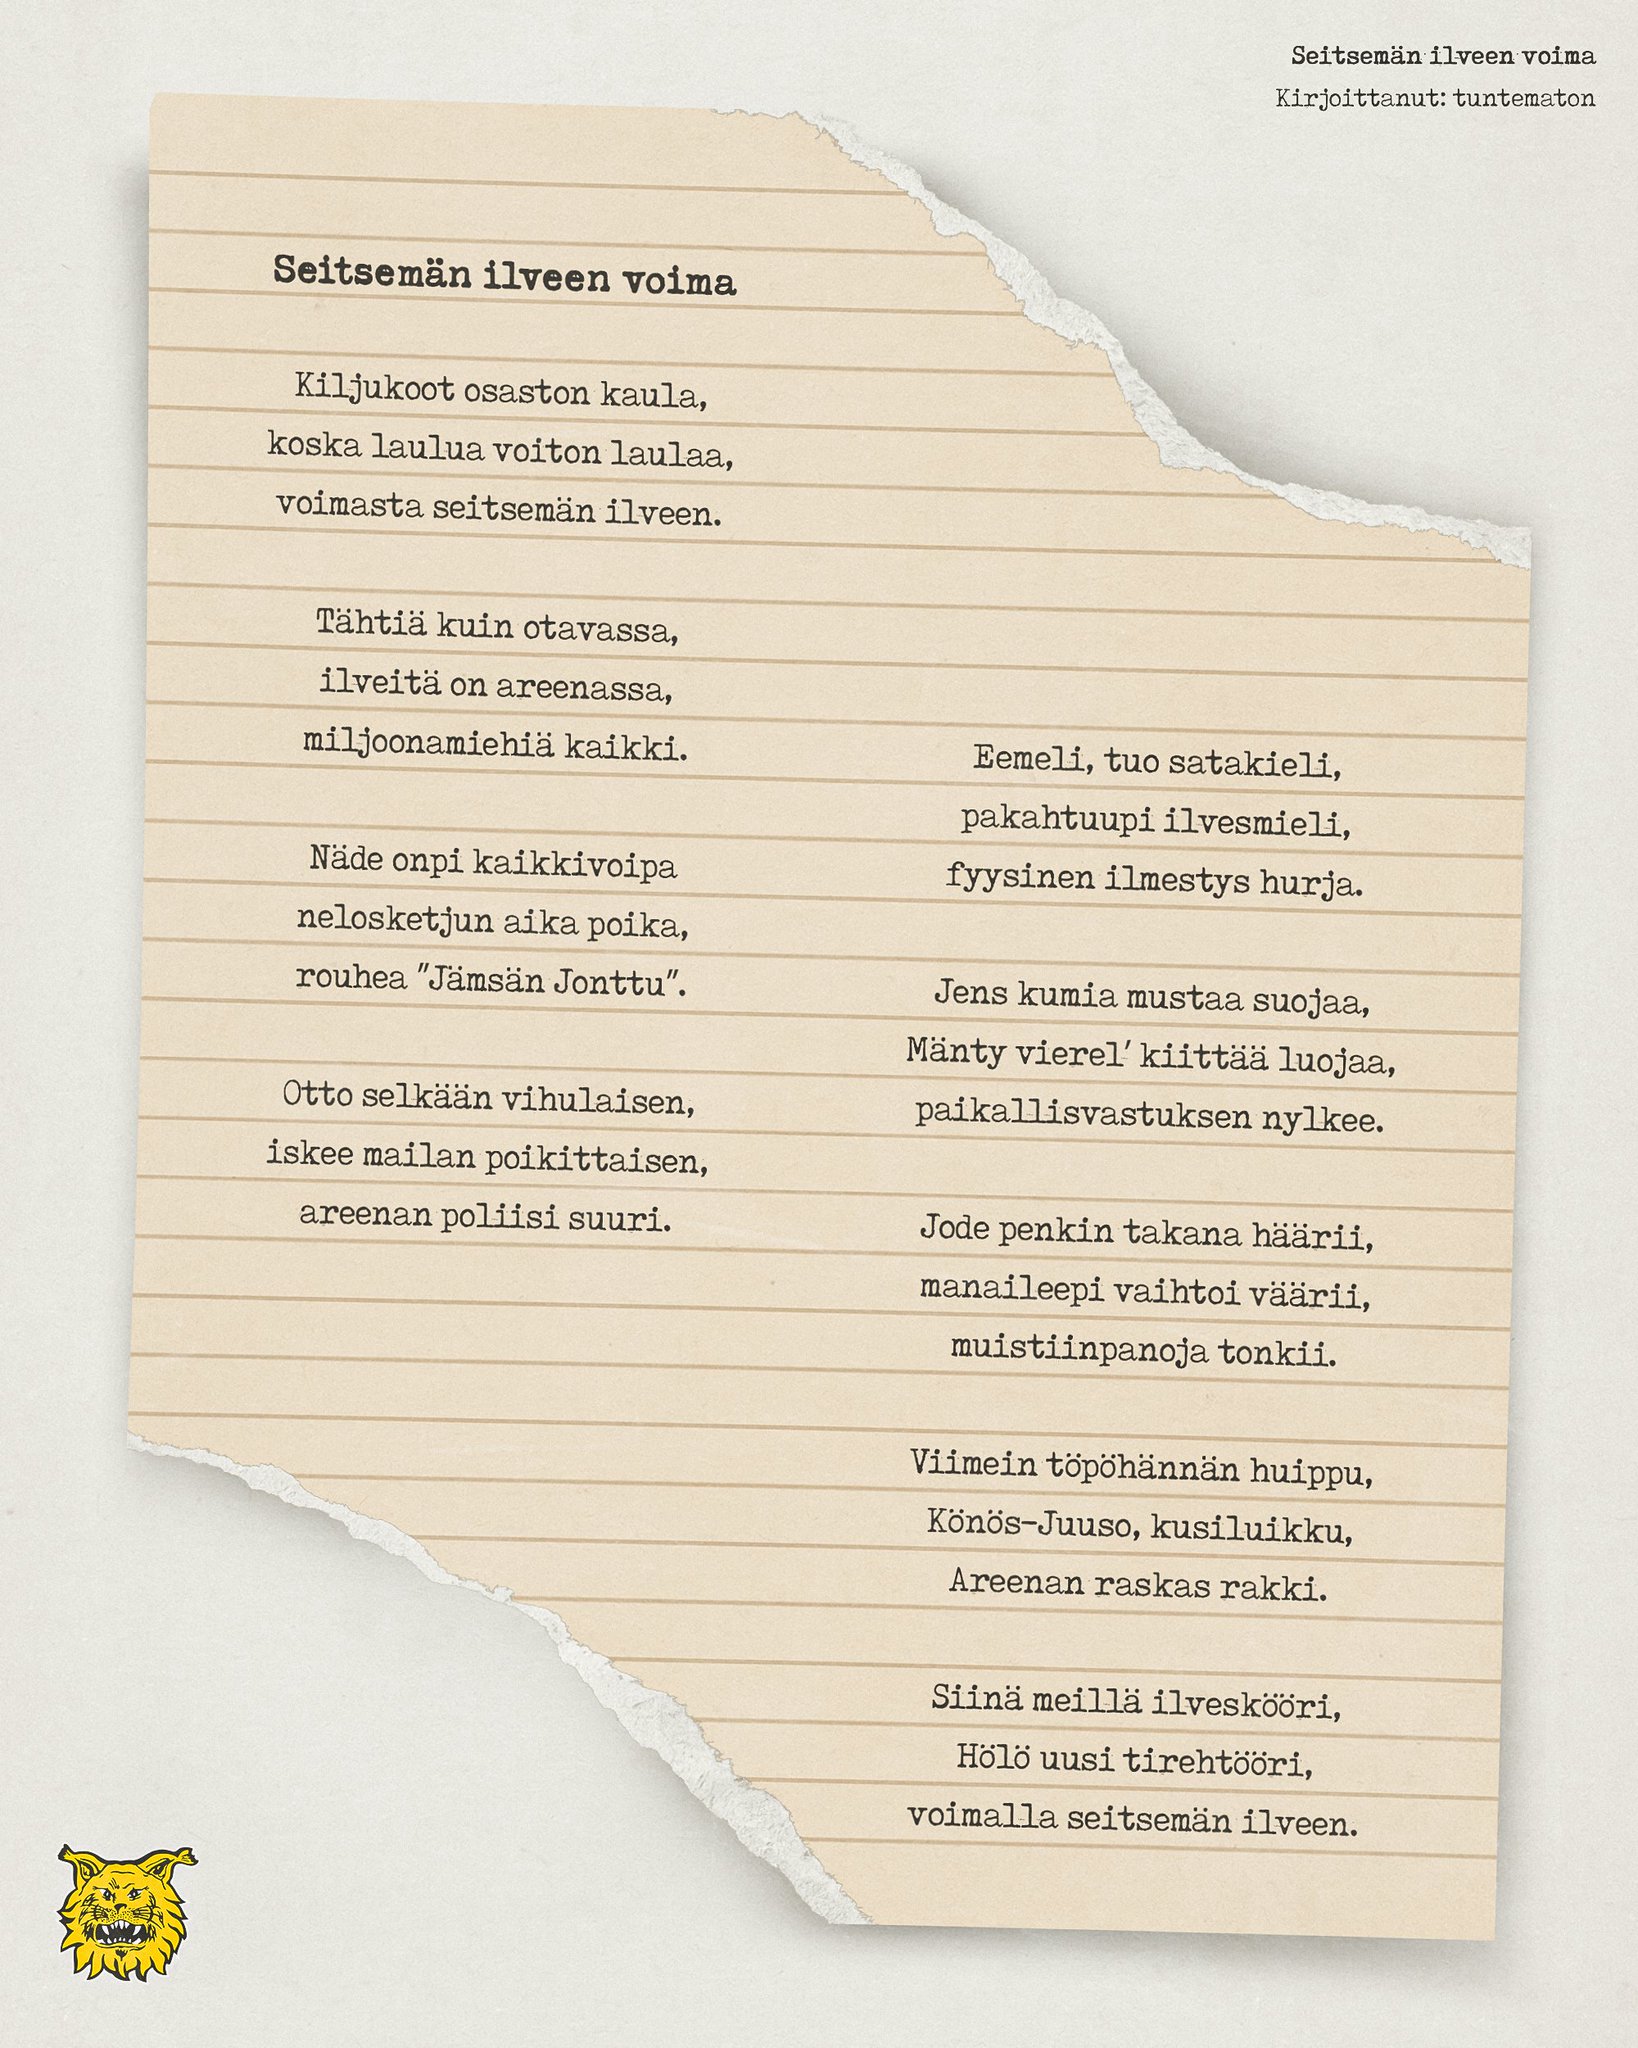 Seitsemän ilveen voima
Kirjoittanut: tuntematon
Seitsemän ilveen voima
Kiljukoot osaston kaula,
koska laulua voiton laulaa,
voimasta seitsemän ilveen.
Tähtiä kuin otavassa,
ilveitä on areenassa,
miljoonamiehiä kaikki.
Näde onpi kaikkivoipa
nelosketjun aika poika,
rouhea "Jämsän Jonttu".
Otto selkään vihulaisen,
iskee mailan poikittaisen,
areenan poliisi suuri.
Eemeli, tuo satakieli,
pakahtuupi ilvesmieli,
fyysinen ilmestys hurja.
Jens kumia mustaa suojaa,
Mänty vierel' kiittää luojaa,
paikallisvastuksen nylkee.
Jode penkin takana häärii,
manaileepi vaihtoi väärii,
muistiinpanoja tonkii.
Viimein töpöhännän huippu,
Könös-Juuso, kusiluikku,
Areenan raskas rakki.
Siinä meillä ilveskööri,
Hölö uusi tirehtööri,
voimalla seitsemän ilveen.